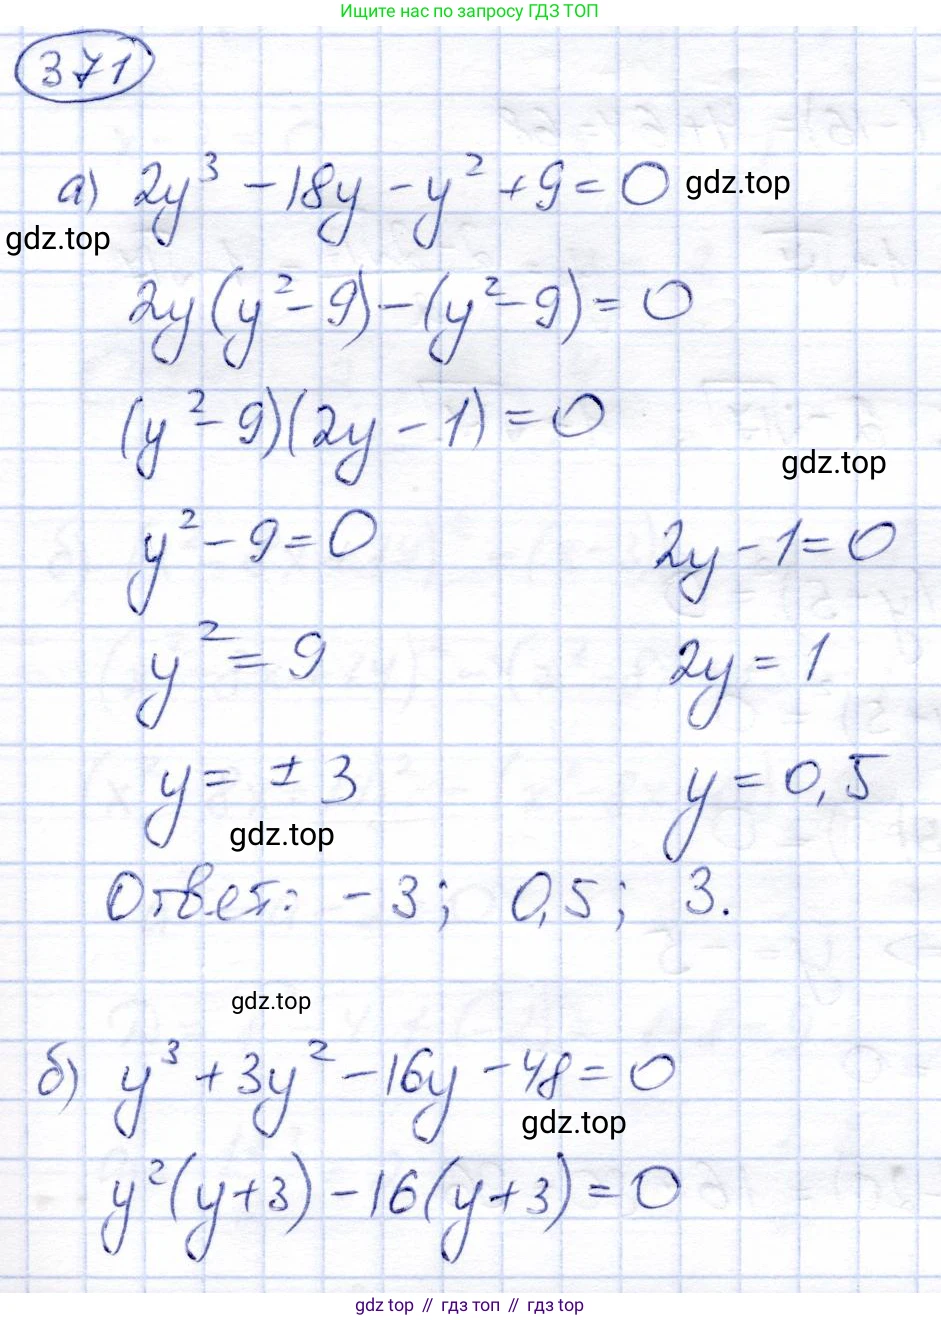 Ищите нас по запросу ГДЗ ТОП
371
а) 2y³ - 18y - y² + 9 = 0 gdz.top
gdz.top
2y(y² - 9) - (y² - 9) = 0
(y² - 9)(2y - 1) = 0
gdz.top
y² - 9 = 0 2y - 1 = 0
y² = 9 2y = 1
y = ± 3 y = 0,5
gdz.top
Ответ: -3; 0,5; 3.
gdz.top
б) y³ + 3y² - 16y - 48 = 0
gdz.top
y²(y+3) - 16(y+3) = 0
gdz top // гдз топ // гдз top